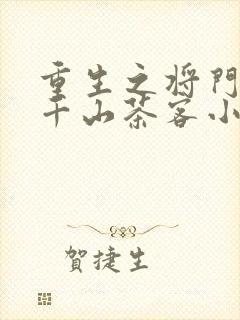 重生之将门
千山茶客小
賀捷生